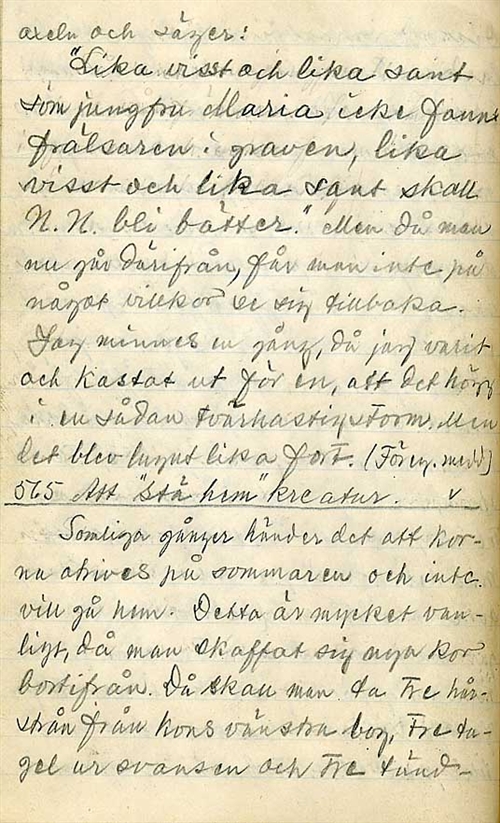 axeln och säger:
"Lika visst och lika sant
som jungfru Maria icke fann
frälsaren i graven, lika
visst och lika sant skall
N. N. bli bättre." Men då man
nu går därifrån, får man inte på
något villkor se sig tillbaka.
Jag minnes en gång, då jag varit
och kastat ut för en, att det
i en sådan tvärhastig storm. Men
det blev lugnt lika fort. (Föreg. medd)
565 Att "stä hem" kreatur. v
Somliga gånger händer det att kor-
na otrives på sommaren och inte
vill gå hem. Detta är mycket van-
ligt, då man skaffat sig nya kor
bortifrån. Då skall man ta tre hår-
strån från kons vänstra bog, tre ta-
gel ur svansen och tre tänd-